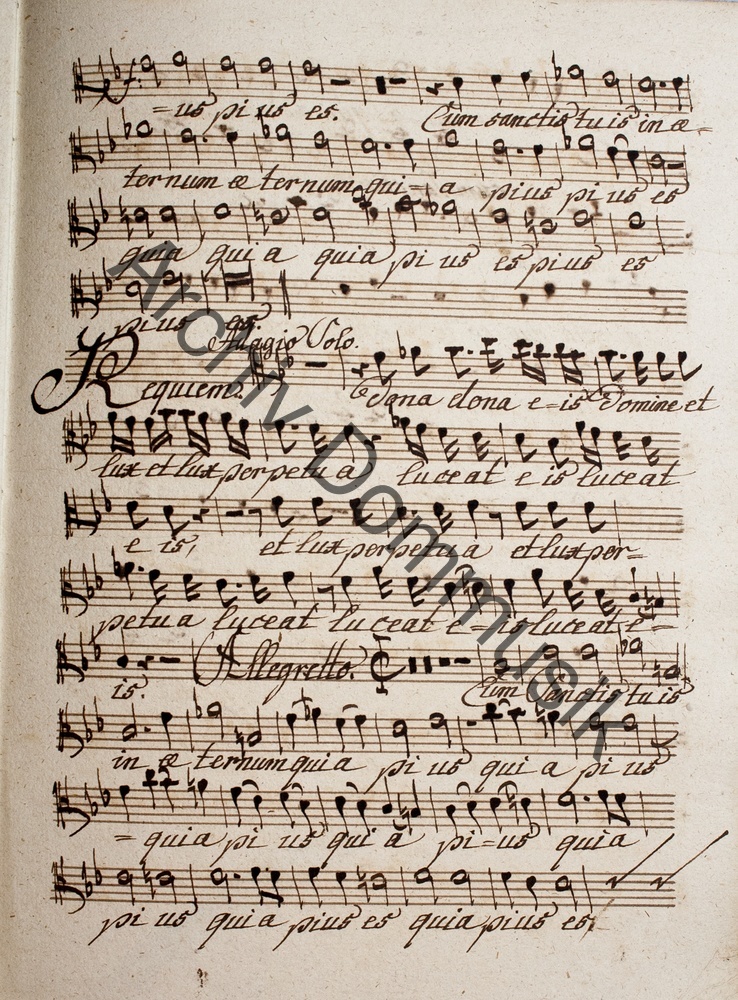 =us pi us es. Cum sanctis tu is in æ=
ternum æ ternum qui=a pius pi us es
quia qui a quia pi us es pius es
pius es.
Adagio Solo.
Requiem. Dona dona e=is Domine et
lux et lux perpetu a luceat e is luceat
e is, et lux perpetu a et lux per=
petu a luceat luceat e=is luceat e=
is. Allegretto. Cum Sanctis tu is
in æ ternum quia pi us qui a pi us
= quia pi us qui a pi=us quia
pi us quia pius es quia pius es,
Archiv Dommusik